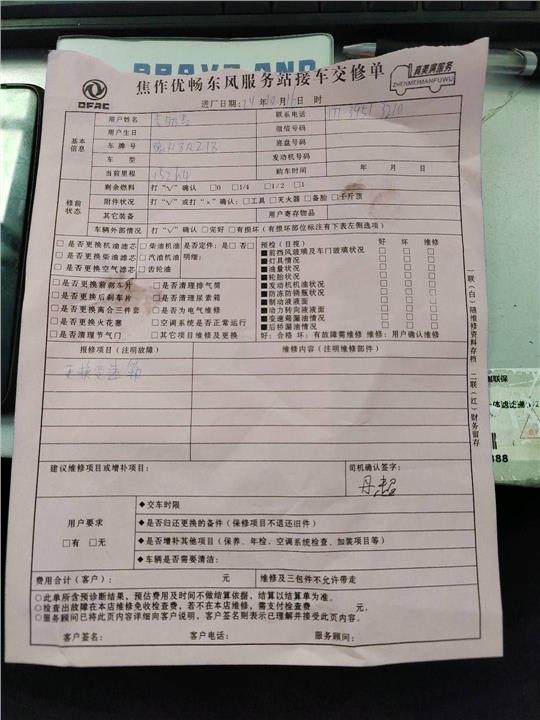 焦作优畅东风服务站接车交修单
真美满服务
ZHENMEIMANFUWU
DFAC
进厂日期: 年 月 日 时
用户姓名
联系电话
用户生日
微信号码
基本信息
车牌号
底盘号
车型
发动机号码
当前里程 15264
购车时间 年 月 日
修前状态
剩余燃料 打“√”确认 □0 □1/4 □1/2 □1
附件状况 打“√”或打“×”确认: □工具 □灭火器 □备胎 □千斤顶
其它装备
用户寄存物品
车辆外部情况 打“√”确认 □完好 □有损坏(有损坏部位标注有下表左侧选项)
□是否更换机油滤芯 □柴油机油 是否定件: 是□ 否□
□是否更换柴油滤芯 □汽油机油 明细:
□是否更换空气滤芯 □齿轮油
□是否更换前刹车片 □是否清理排气筒
□是否更换后刹车片 □是否清理尿素箱
□是否更换离合三件套 □是否为电气维修
□是否更换火花塞 □空调系统是否正常运行
□是否清理节气门 □其它项目维修及更换
预检(目视) 好 坏 维修
■前挡风玻璃及车门玻璃状况 □ □ □
■灯具情况 □ □ □
■油量状况 □ □ □
■轮胎状况 □ □ □
■发动机机油状况 □ □ □
■防冻防锈瓶状况 □ □ □
■制动液液面 □ □ □
■动力转向液液面 □ □ □
■变速箱漏油情况 □ □ □
■后桥漏油情况 □ □ □
好: 合格 坏: 有故障需维修 维修: 用户确认维修
报修项目(注明故障)
维修内容(注明维修部件)
更换变速箱
建议维修项目或增补项目:
司机确认签字:
用户要求
□有 □无
◆交车时限
◆是否归还更换的备件(保修项目不退还旧件)
◆是否增补其他项目(保养、年检、空调系统检查、加装项目等)
◆车辆是否需要清洁:
费用合计(客户): 元
维修及三包件不允许带走
○此单所含预诊断结果,预估费用及时间不做结算依据,结算以结算单为准。
○检查出故障在本店维修免收检查费,若不在本店维修,需支付检查费 元。
○服务顾问已将此页内容详细向客户说明,客户签名则表示已理解并接受此页内容。
客户签名: 客户电话: 服务顾问:
一联(白)随维修资料存档 二联(红)财务留存